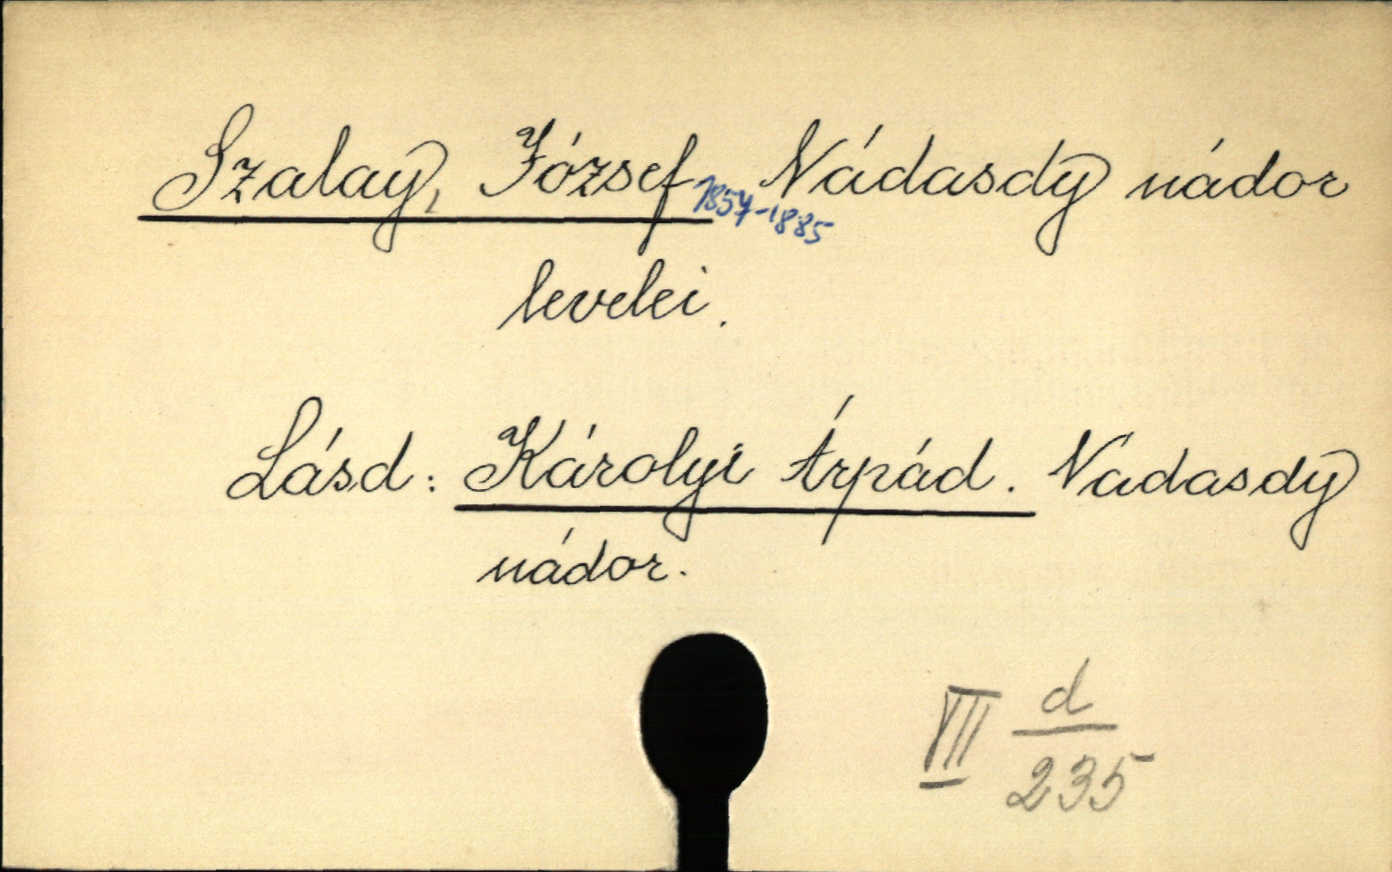 Szalay, József 1857-1885 Nádasdy nádor
levelei.
Lásd: Károlyi Árpád. Nádasdy
nádor.
VII d
235